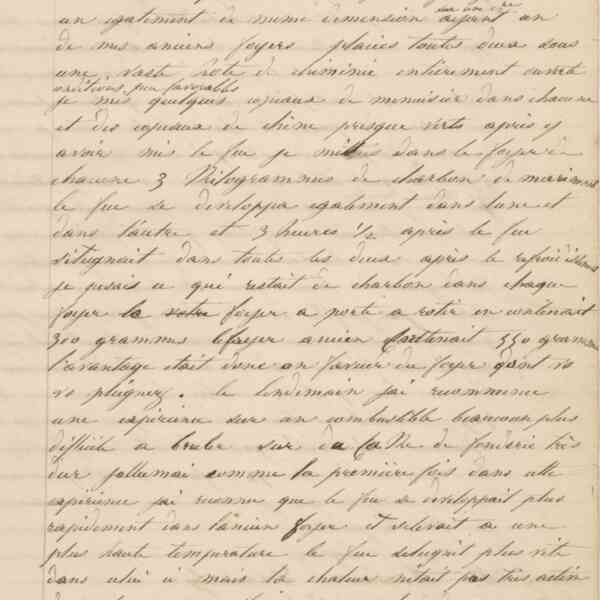 un egalement de meme dimension ayant un
de mes anciens foyers placés toutes deux sous
une vaste hote de chiminée entièrement ouverte
conditions peu favorables
je mis quelques copeaux de menuisier dans chacune
et des copeaux de chène presque verts après y
avoir mis le feu je mis dans le foyer de
chacune 3 Kilogrammes de charbon de
le feu se dévéloppa egalement dans lune et
dans l'autre et 3 heures 1/2 après le feu
s'éteignait dans toutes les deux après le refroidissement
je pesais ce qui restait de charbon dans chaque
foyer la votre foyer a porte a rotir en contenait
300 grammes le foyer ancien contenait 550 grammes
l'avantage etait donc en faveur du foyer dont vs
vs plaignez. le lendemain jai recommencé
une expérience sur un combustible beaucoup plus
difficile a bruler sur du coke de fonderie très
dur jallumai comme la première fois dans cette
expérience jai reconnu que le feu se dévéloppait plus
rapidement dans l'ancien foyer il selevait a une
plus haute température le feu séteignit plus vite
dans celui ci mais la chaleur nétait pas très active